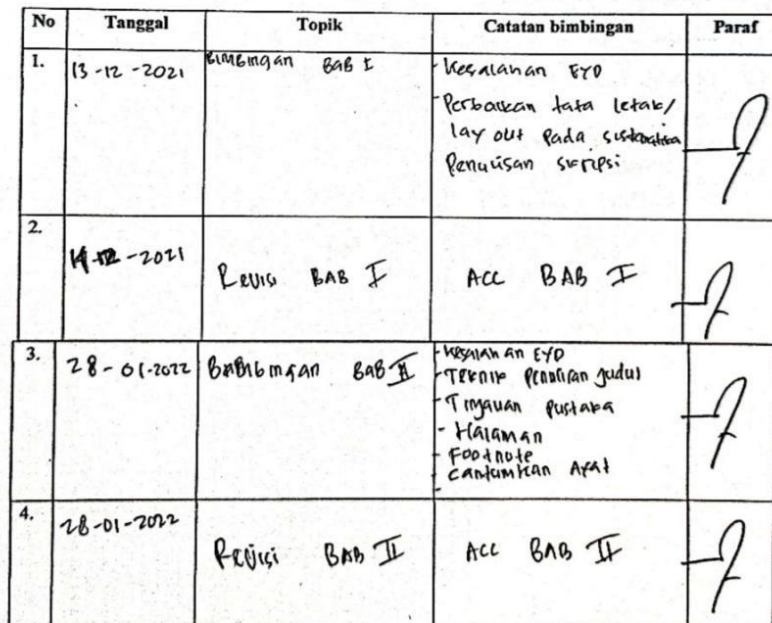 No Tanggal Topik Catatan bimbingan Paraf
1. 13-12-2021 Bimbingan BAB I - Kesalahan EYD
- Perbaikan tata letak/
lay out pada sistematika
Penulisan skripsi
2. 14-12-2021 Revisi BAB I ACC BAB I
3. 28-01-2022 BAB II - Kesalahan EYD
- Teknik Penulisan judul
- Tinjauan pustaka
- Halaman
- Footnote
- Cantumkan Ayat
4. 28-01-2022 Revisi BAB II ACC BAB II